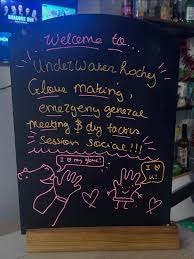 Welcome to...
UnderWater hockey
Glove making,
emergency general
meeting & diy tacos
session social!!!
I ♡ my glove!
I ♡ u!